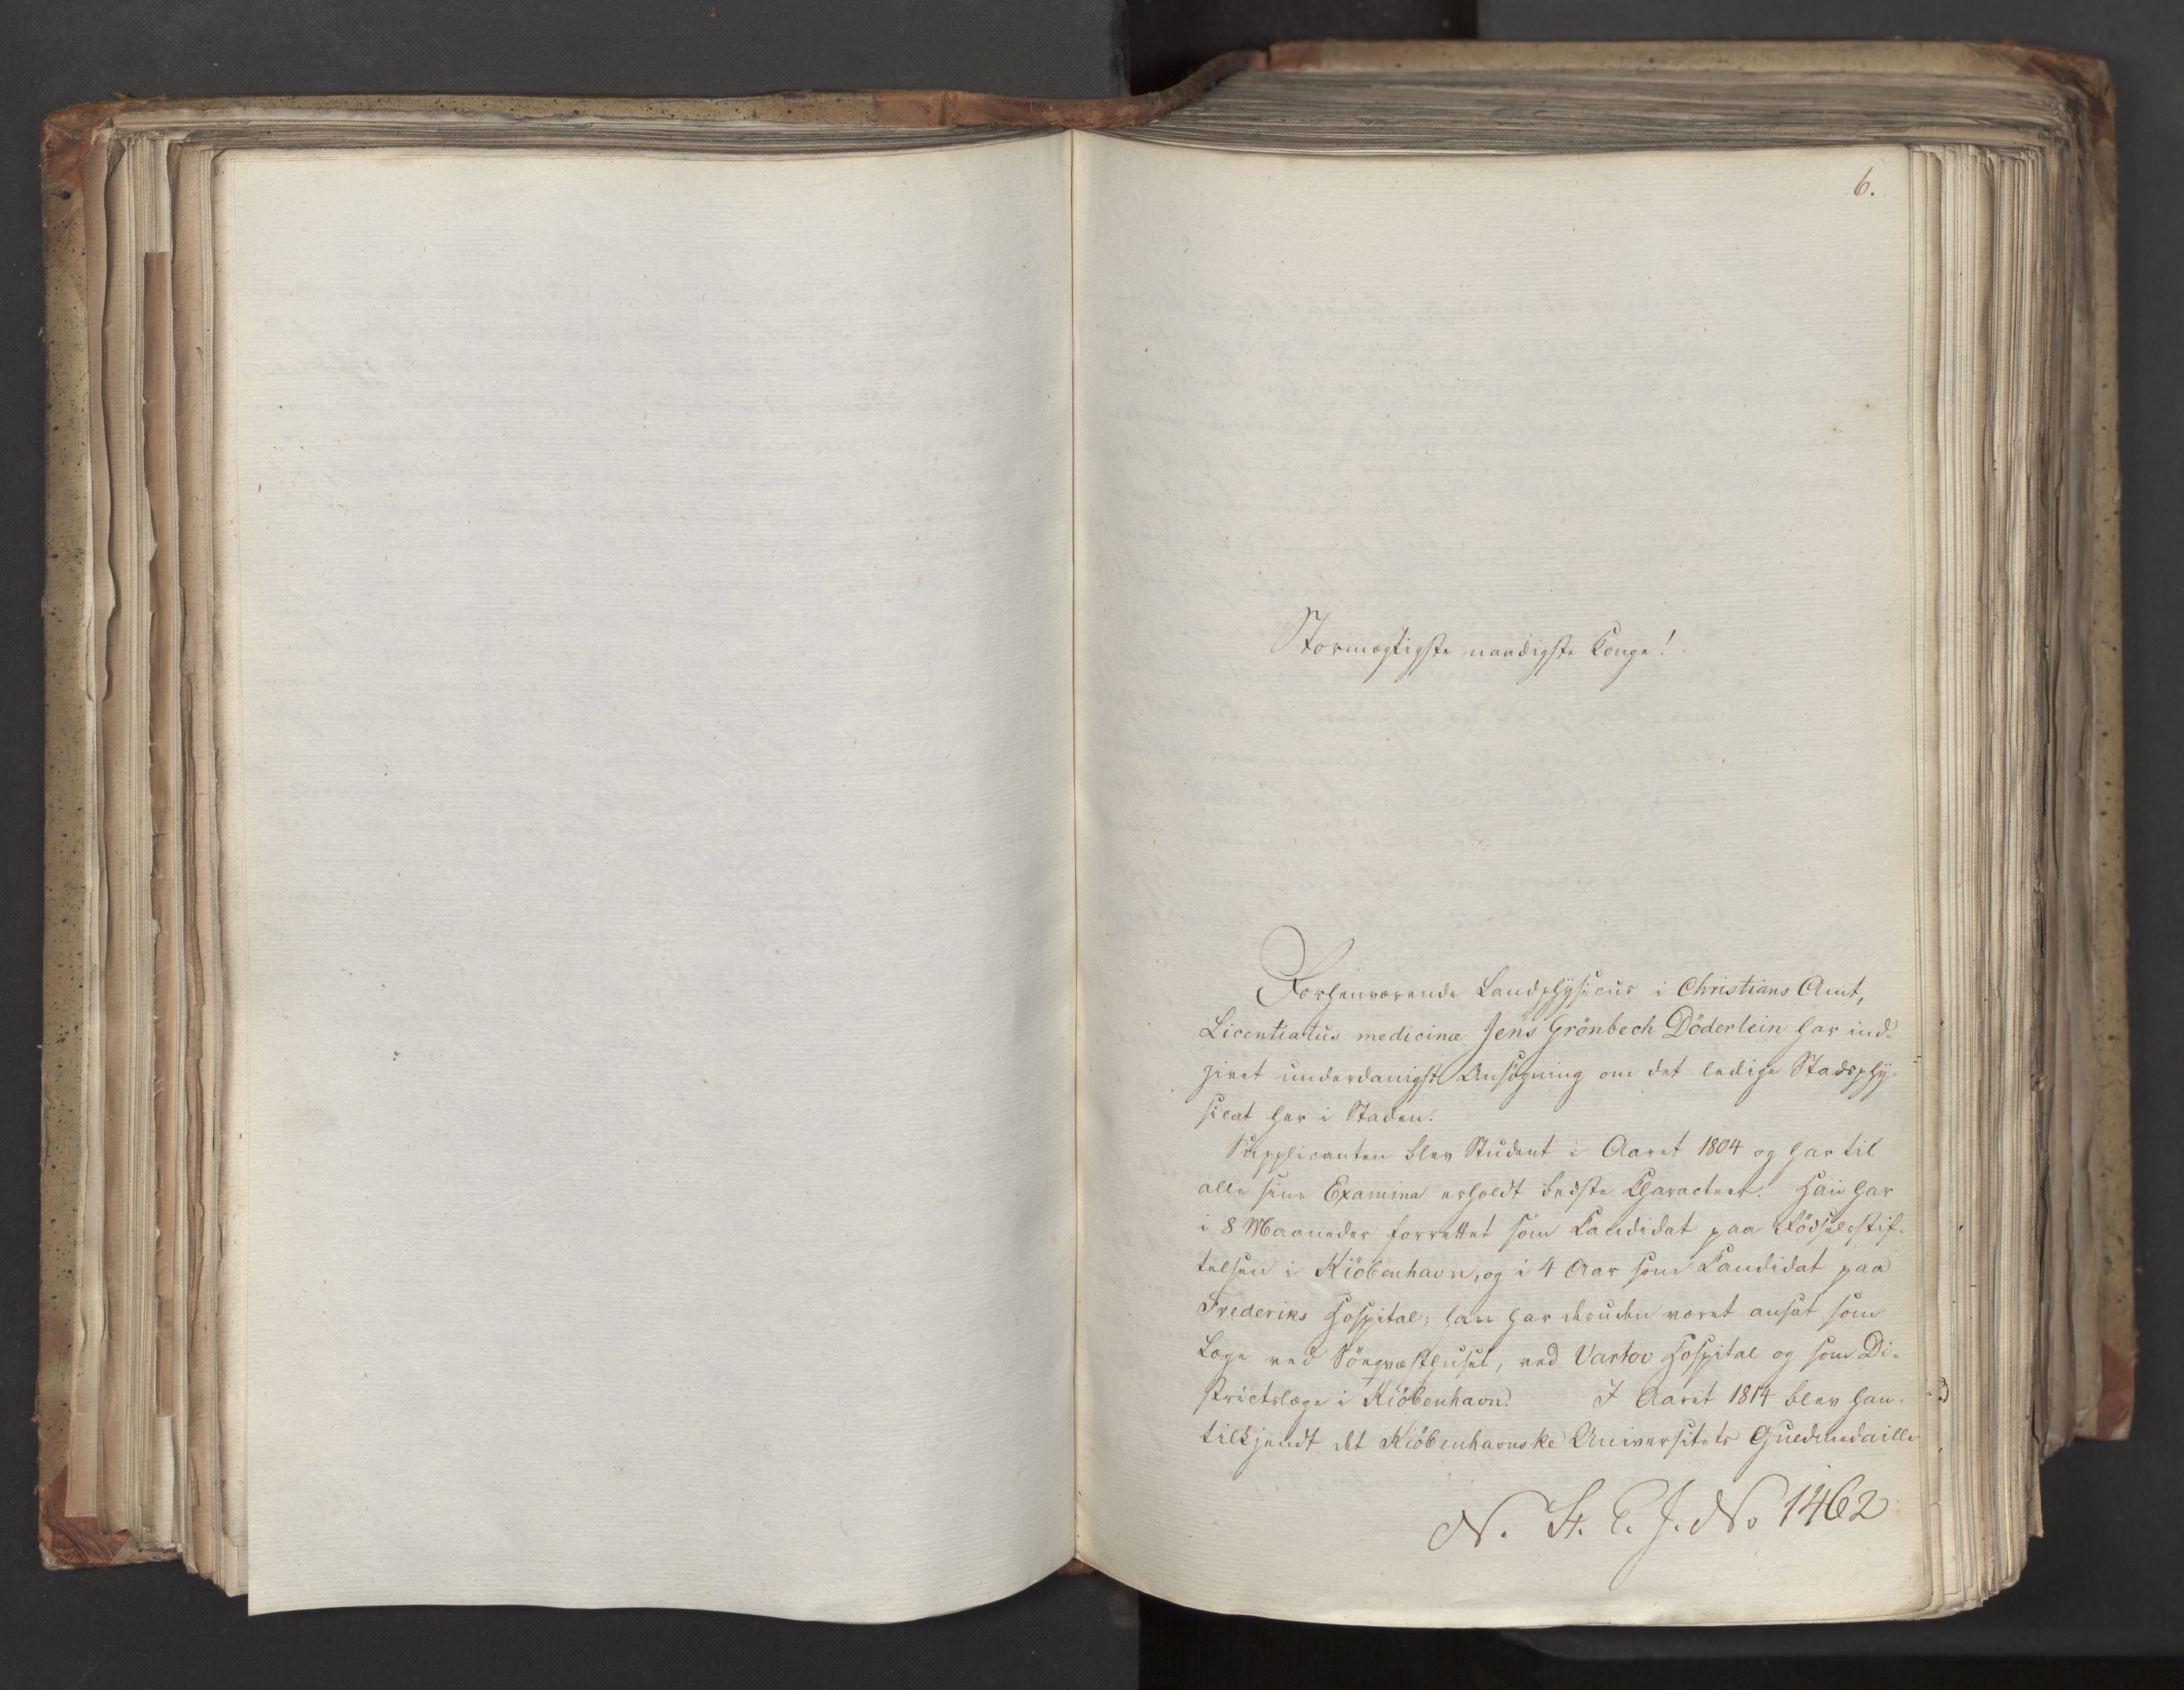 6.
Stormægtigste naadigste Konge!
Forhenværende Landphysicus i Christians Amt,
Licentiatus medicinæ Jens Grönbech Döderlein har ind-
givet underdanigst Ansögning om det ledige Stadsphy-
sicat her i Staden.
Supplicanten blev Student i Aaret 1804 og har til
alle sine Examina erholdt bedste Characteer. Han har
i 8 Maaneder forrettet som Candidat paa Födselsstif-
telsen i Kiöbenhavn, og i 4 Aar som Candidat paa
Frederiks Hospital; han har desuden været ansat som
Læge ved Söeqvæsthuset, ved Vartov Hospital og som Di-
strictslæge i Kiöbenhavn. I Aaret 1814 blev han
tilkjendt det Kiöbenhavnske Universitets Guldmedaille
N. St. C. J. No 1462